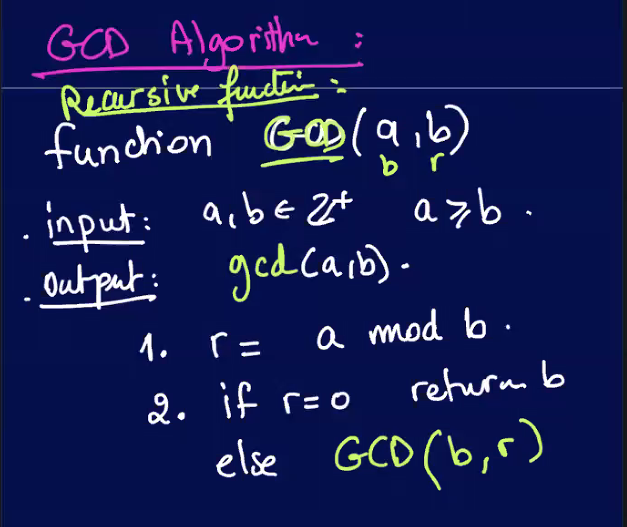 GCD Algorithm :
Recursive function :
function GCD(a,b)
b r
. input: a,b ∈ ℤ+ a ⩾ b .
. Output: gcd(a,b).
1. r = a mod b .
2. if r=0 return b
else GCD(b,r)